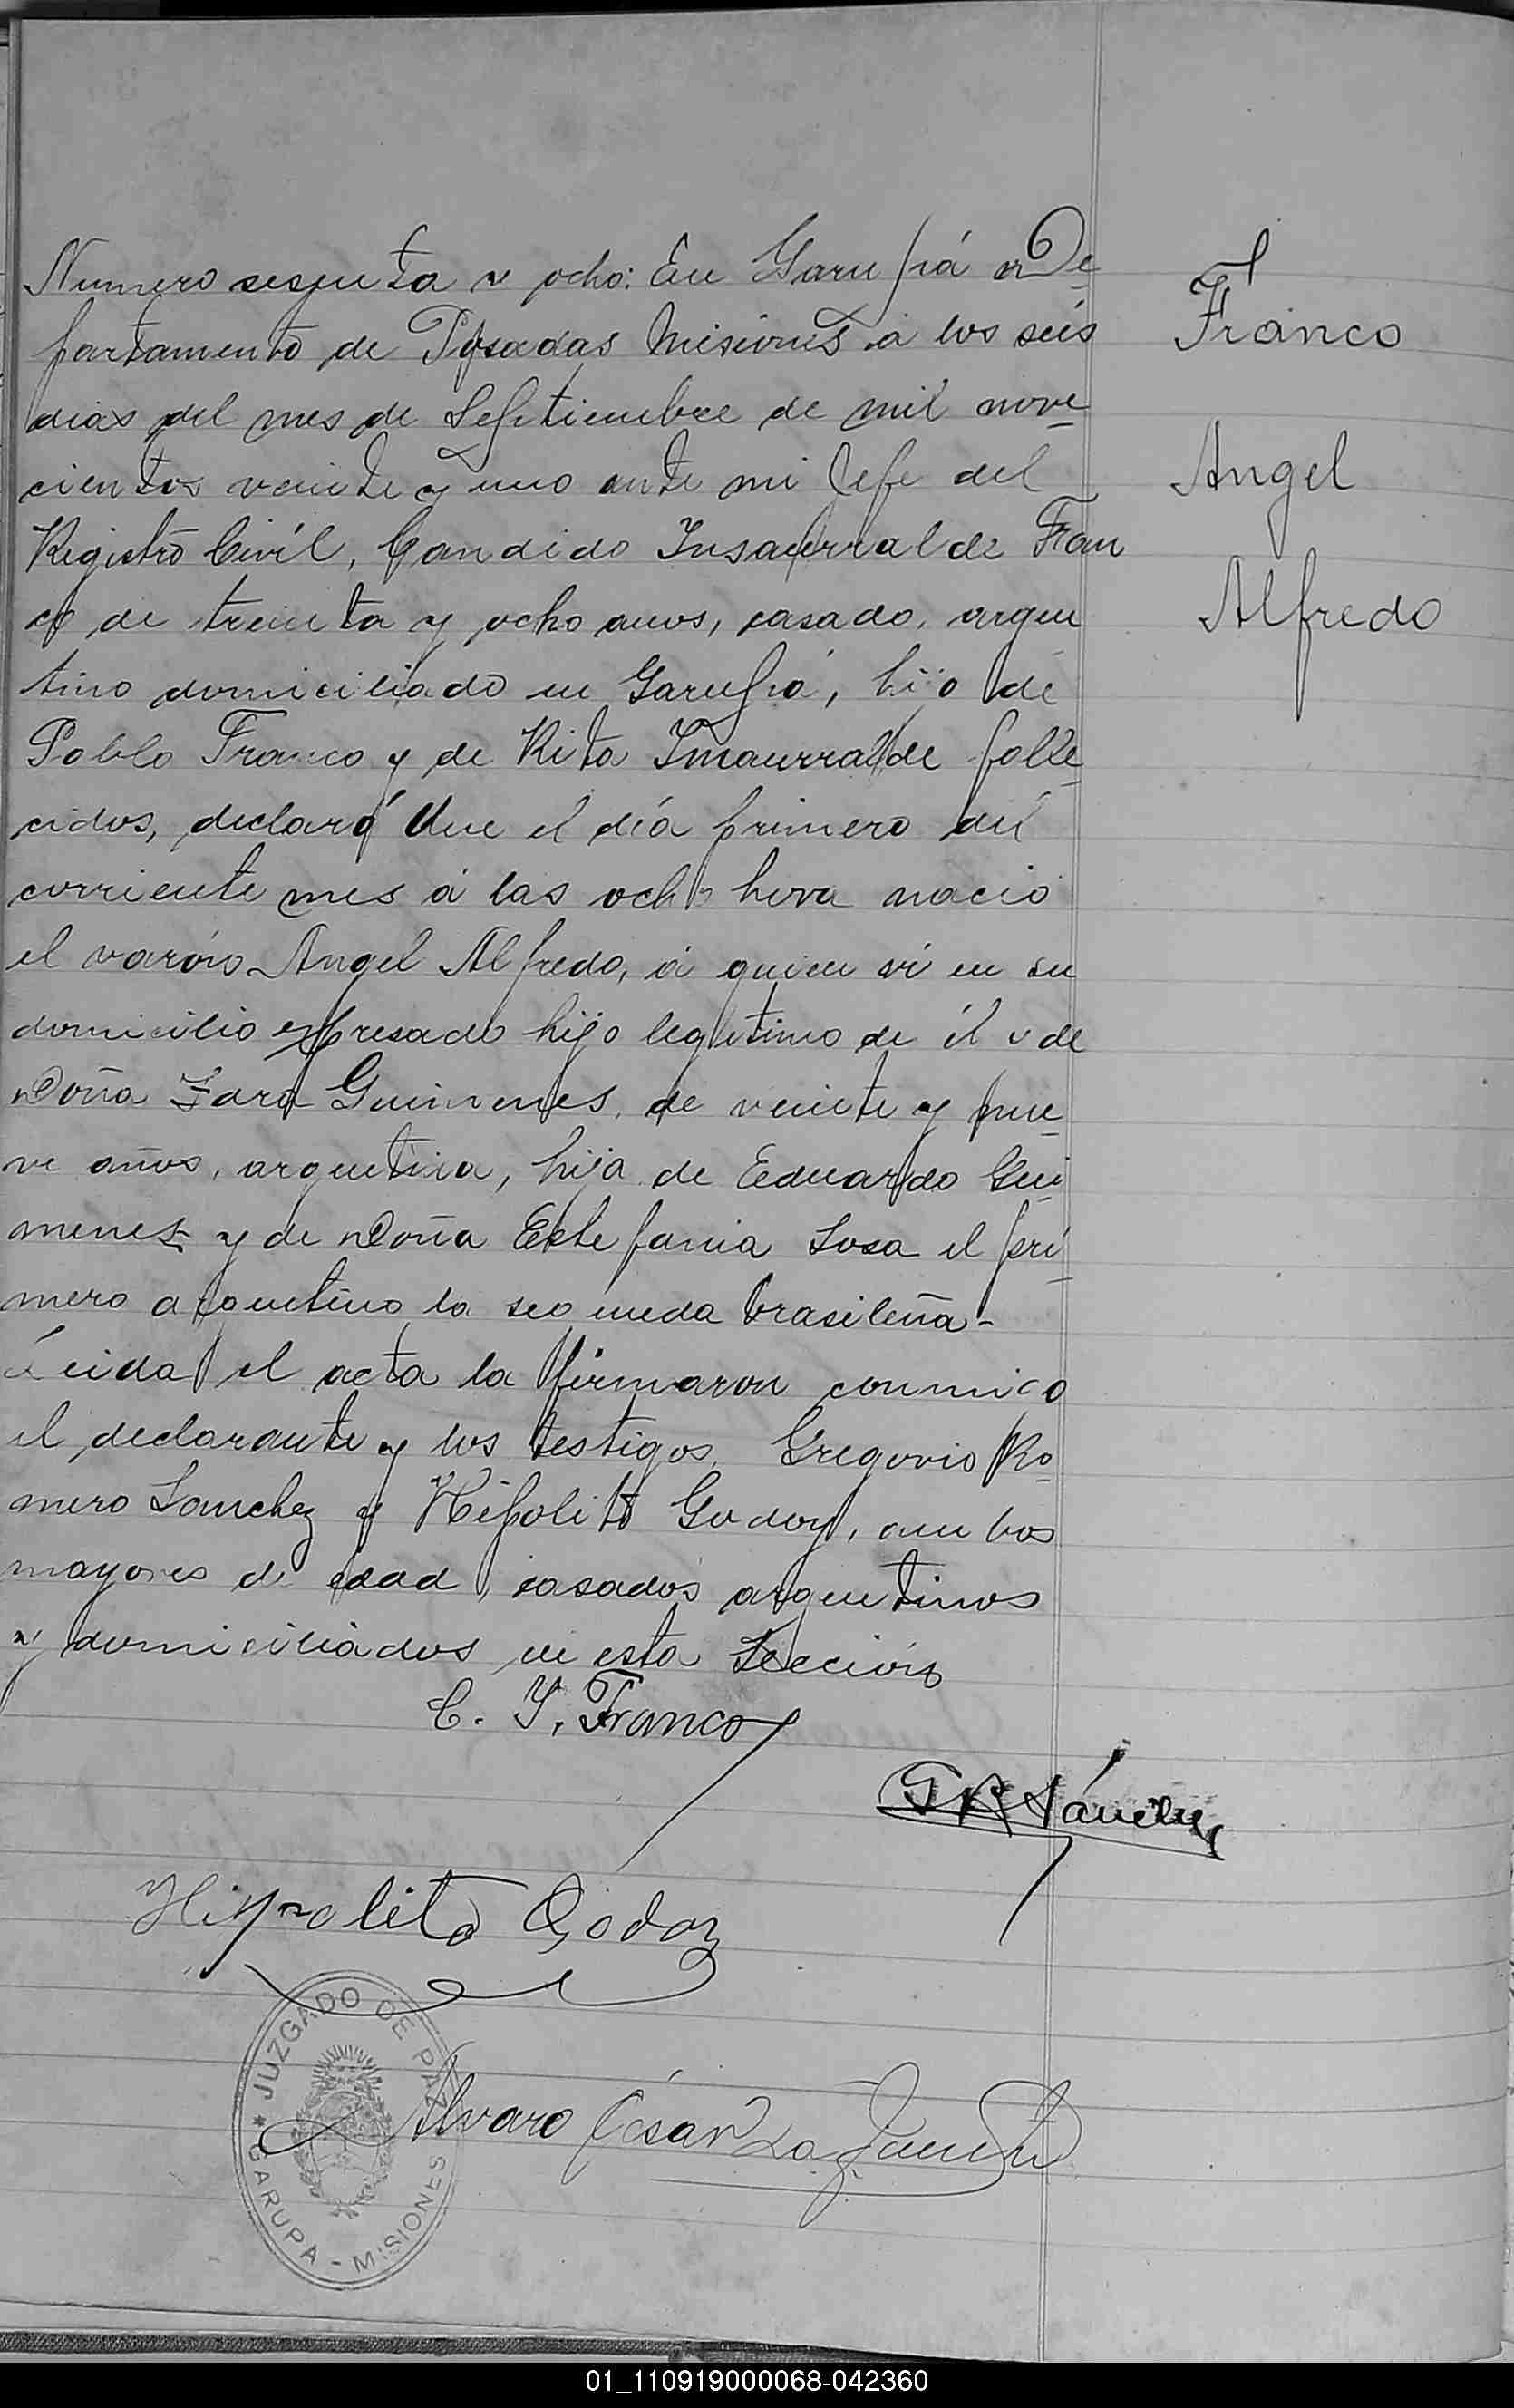 Numero sesenta y ocho: En Garupá De
partamento de Posadas Misiones á los seis
dias del mes de Septiembre de mil nove
cientos veinte y uno ante mi Jefe del
Registro Civil, Candido Insaurralde Fran
co de treinta y ocho anos, casado, argen
tino domiciliado en Garupá, hijo de
Pablo Franco y de Rita Insaurralde falle
cidos, declaró Que el día primero del
corriente mes á las ocho hora nació
el varón Angel Alfredo, á quien ví en su
domicilio expresado hijo legitimo de él y de
Doña Sara Guimenes, de veinte y nue
ve años, argentina, hija de Eduardo Gui
menes y de Doña Estefania Sosa el pri
mero argentino la segunda brasileña-
Leida el acta la firmaron conmigo
el declarante y los testigos, Gregorio Ro
mero Sanchez y Hipolito Godoy, ambos
mayores de edad, casados argentinos
y domiciliados en esta Sección
C. Y. Franco
G R Sánchez
Hippolito Godoy
Alvaro César
JUZGADO DE PAZ
* GARUPA - MISIONES
Franco
Angel
Alfredo
01_110919000068-042360